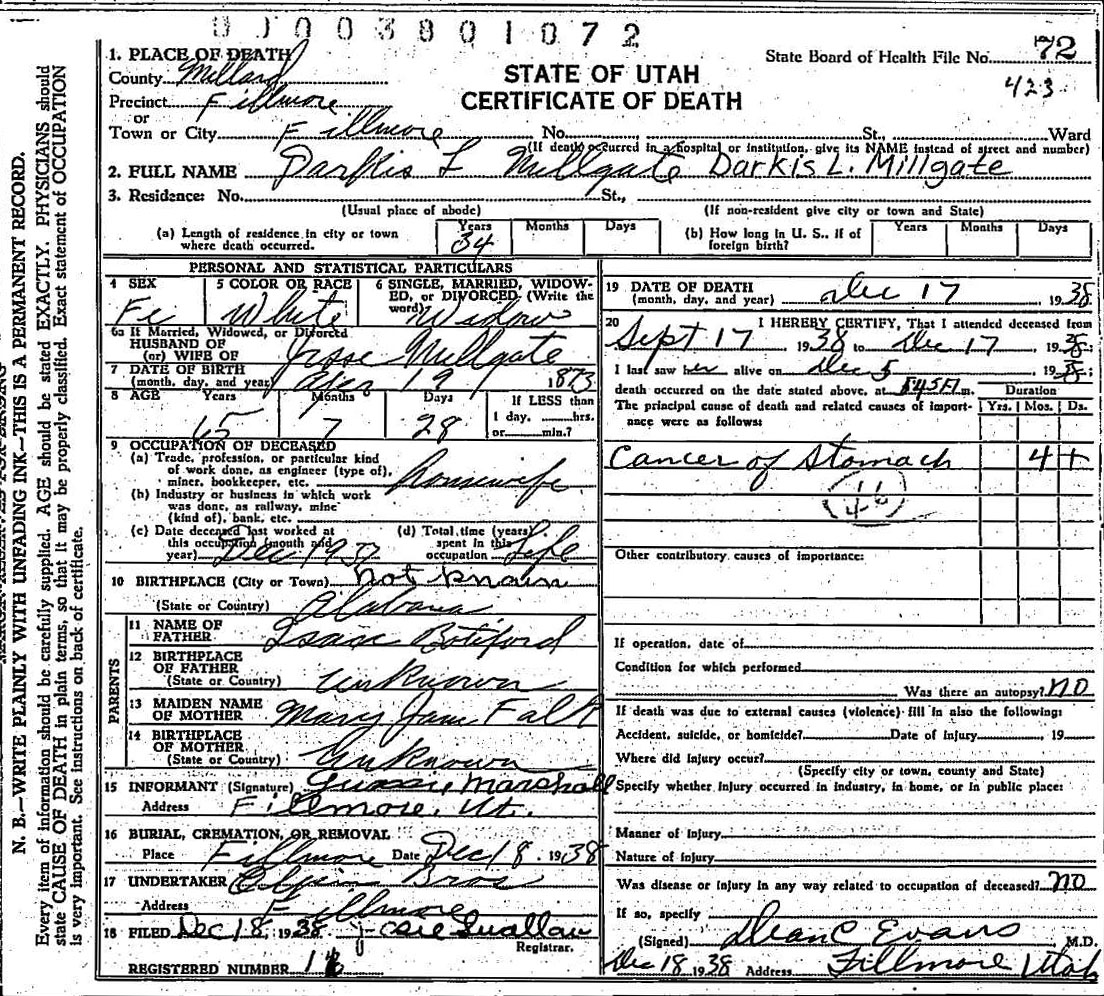 0 0 0 3 8 0 1 0 7 2
N. B.—WRITE PLAINLY WITH UNFADING INK—THIS IS A PERMANENT RECORD.
Every item of information should be carefully supplied. AGE should be stated EXACTLY. PHYSICIANS should
state CAUSE OF DEATH in plain terms, so that it may be properly classified. Exact statement of OCCUPATION
is very important. See instructions on back of certificate.
State Board of Health File No. 72
423
STATE OF UTAH
CERTIFICATE OF DEATH
1. PLACE OF DEATH
County Millard
Precinct Fillmore
or
Town or City Fillmore No. , St., Ward
(If death occurred in a hospital or institution, give its NAME instead of street and number)
2. FULL NAME Darkis L Millgate Darkis L. Millgate
3. Residence: No. St.,
(Usual place of abode) (If non-resident give city or town and State)
(a) Length of residence in city or town where death occurred. Years 34 Months Days
(b) How long in U. S., if of foreign birth? Years Months Days
PERSONAL AND STATISTICAL PARTICULARS
4 SEX Fe
5 COLOR OR RACE White
6 SINGLE, MARRIED, WIDOWED, or DIVORCED. (Write the word) Widow
6a If Married, Widowed, or Divorced
HUSBAND OF
(or) WIFE OF Jesse Millgate
7 DATE OF BIRTH
(month, day, and year) Apr 19 1873
8 AGE Years 65 Months 7 Days 28 If LESS than
1 day, hrs.
or min.?
9 OCCUPATION OF DECEASED
(a) Trade, profession, or particular kind
of work done, as engineer (type of),
miner, bookkeeper, etc. Housewife
(b) Industry or business in which work
was done, as railway, mine
(kind of), bank, etc.
(c) Date deceased last worked at
this occupation (month and
year) Dec 1937
(d) Total time (years)
spent in this
occupation Life
10 BIRTHPLACE (City or Town) not known
(State or Country) Alabama
PARENTS
11 NAME OF
FATHER Isaac Botiford
12 BIRTHPLACE
OF FATHER
(State or Country) Unknown
13 MAIDEN NAME
OF MOTHER Mary Jane Falk
14 BIRTHPLACE
OF MOTHER
(State or Country) Unknown
15 INFORMANT (Signature) Marshall
Address Fillmore, Ut.
16 BURIAL, CREMATION, OR REMOVAL
Place Fillmore Date Dec 18, 1938
17 UNDERTAKER Olpin Bros
Address Fillmore
18 FILED Dec 18, 1938 Swallow
Registrar.
REGISTERED NUMBER
19 DATE OF DEATH
(month, day, and year) Dec 17 1938
20 I HEREBY CERTIFY, That I attended deceased from
Sept 17 1938 to Dec 17 1938;
I last saw her alive on Dec 5 1938;
death occurred on the date stated above, at m.
Duration
The principal cause of death and related causes of importance were as follows: Yrs. Mos. Ds.
Cancer of Stomach 4 +
46
Other contributory causes of importance:
If operation, date of
Condition for which performed
Was there an autopsy? no
If death was due to external causes (violence) fill in also the following:
Accident, suicide, or homicide? Date of injury , 19
Where did injury occur?
(Specify city or town, county and State)
Specify whether injury occurred in industry, in home, or in public place:
Manner of injury
Nature of injury
Was disease or injury in any way related to occupation of deceased? no
If so, specify
(Signed) Dean C Evans M.D.
Dec 18 1938 Address Fillmore Utah